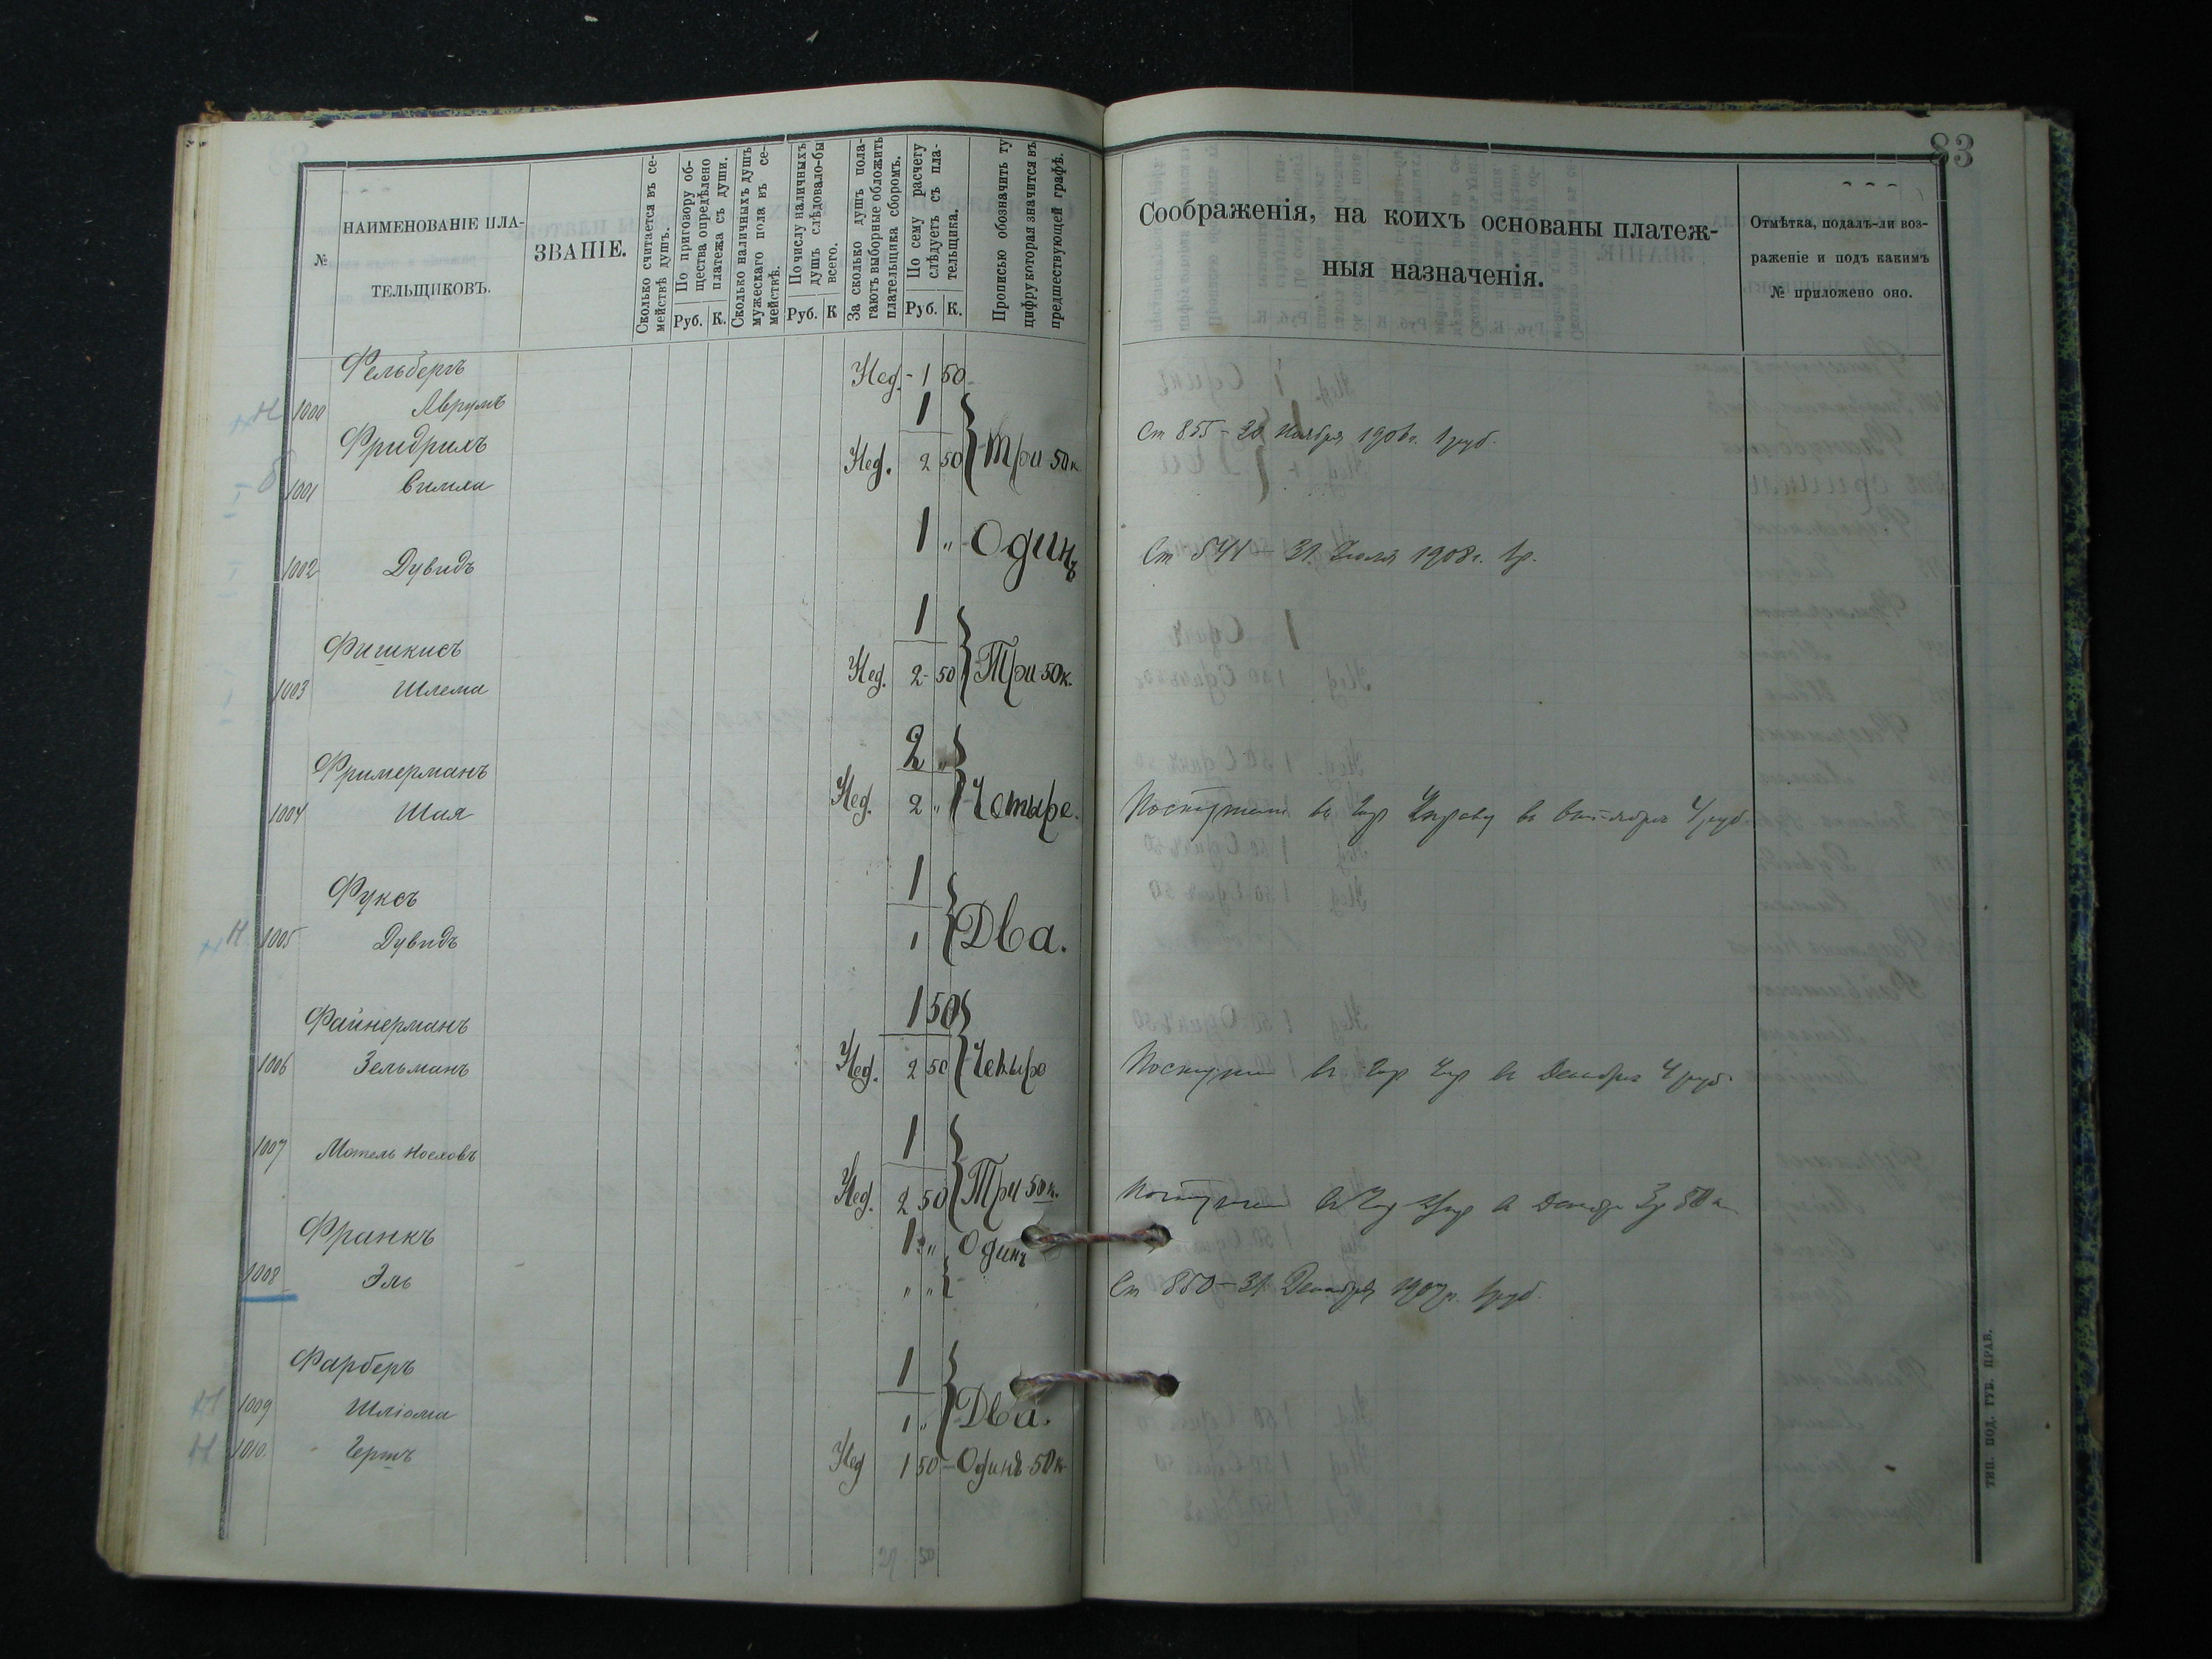 83
№
НАИМЕНОВАНІЕ ПЛА-
ТЕЛЬЩИКОВЪ.
ЗВАНІЕ.
Сколько считается въ се-
мействѣ душъ.
По приговору об-
щества опредѣлено
платежа съ души.
Руб. К.
Сколько наличныхъ душъ
мужескаго пола въ се-
мействѣ.
По числу наличныхъ
душъ слѣдовало-бы
всего.
Руб. К
За сколько душъ пола-
гаютъ выборные обложить
плательщика сборомъ.
По сему расчету
слѣдуетъ съ пла-
тельщика.
Руб. К.
Прописью обозначить ту
цифру которая значится въ
предшествующей графѣ.
Соображенія, на коихъ основаны платеж-
ныя назначенія.
Отмѣтка, подалъ-ли воз-
раженіе и подъ какимъ
№ приложено оно.
Фельбергъ Нед. - 1 50
Н 1000 Аврумъ 1
Фридрихъ Нед. 2 50 Три 50 к
Ст 855 - 20 Ноября 1906г. 1 руб.
1001
1002 Дувидъ 1 " Одинъ
Ст 541 - 31 Іюля 1908г. 1р.
Фишкисъ 1
1003 Шлема Нед. 2 - 50 Три 50к.
Фримерманъ 2 "
1004 Шая Нед. 2 " Четыре.
въ Гор Управу въ Октябрѣ 4 руб.
Фуксъ 1
Н 1005 Дувидъ 1 Два.
Файнерманъ 1 50
1006 Зельманъ Нед. 2 50 Четыре
въ Гор Упр въ Декабрѣ 4 руб.
1007 Мотель Носховъ 1
Нед. 2 50 Три 50 к.
3р 50 к
Франкъ 1 " Одинъ
1008 Эль " "
Ст 850 - 31 Декабря 1907г. 1 руб.
Фарберъ 1
Н 1009 Шліома 1 " Два.
Н 1010. Гершъ Нед 1 50 - Одинъ 50 к
29 50
ТИП. ПОД. ГУБ. ПРАВ.